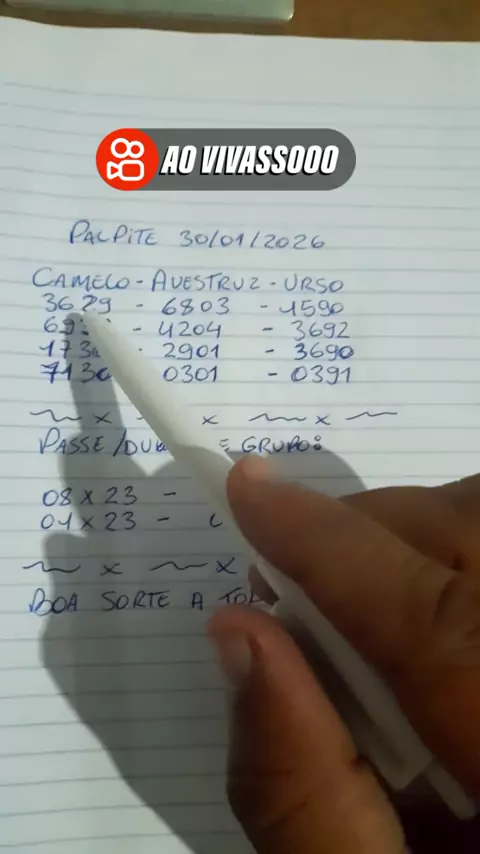 AO VIVASSOOO
PALPITE 30/01/2026
CAMELO - AVESTRUZ - URSO
3629 - 6803 - 1590
- 4204 - 3692
- 2901 - 3690
7130 0301 - 0391
x x x
PASSE / GRUPO:
08 X 23 -
01 X 23 -
x x
BOA SORTE A